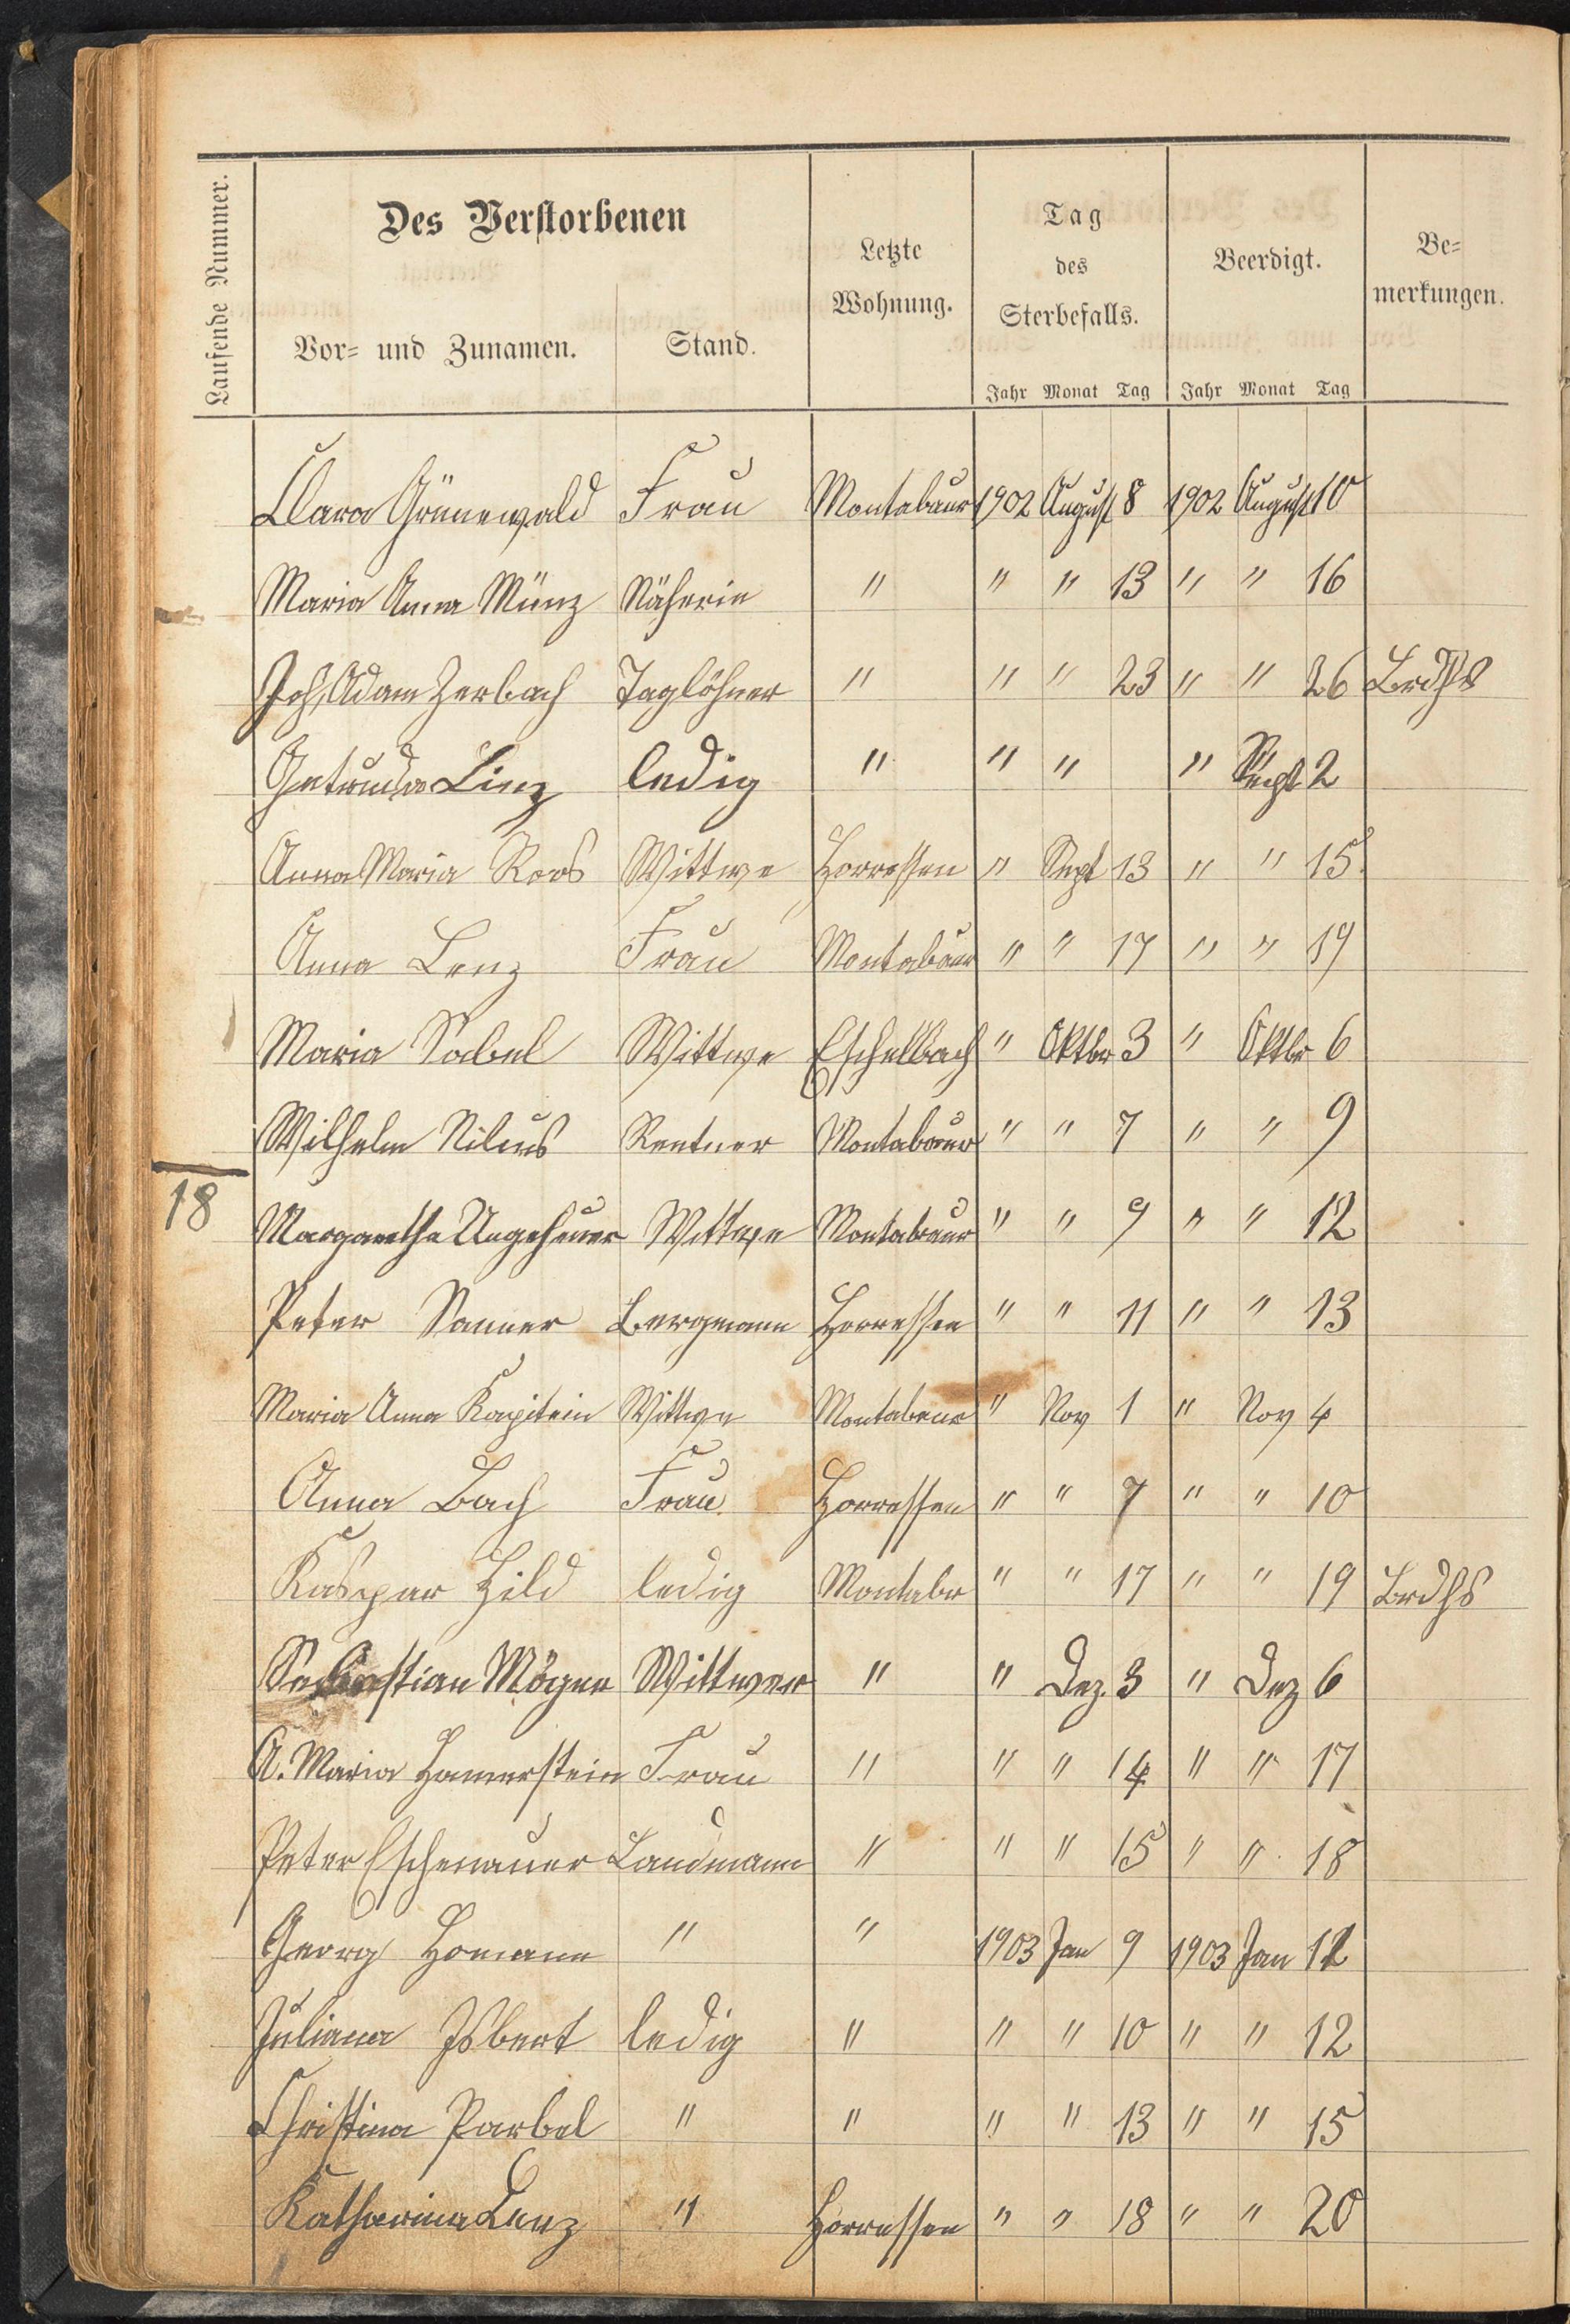 Laufende Nummer.
Des Verstorbenen
Vor- und Zunamen.
Stand.
Letzte
Wohnung.
Tag
des
Sterbefalls.
Beerdigt.
Be-
merkungen.
Jahr Monat Tag Jahr Monat Tag
Clara Grünewald Frau Montabaur 1902 August 8 1902 August 10
Maria Anna Münz Näherin " " " 13 " " 16
Joh. Adam Zerbach Taglöhner " " " 23 " " 26 Brdhs
Getruda Linz ledig " " " " Sept 2
Anna Maria Roos Wittwe Horressen " Sept 13 " " 15.
Anna Lenz Frau Montabaur " " 17 " " 19
Maria Sabel Wittwe Eschelbach " Oktbr 3 " Oktbr 6
Wilhelm Nilius Rentner Montabaur " " 7 " " 9
18
Margaretha Ungeheuer Wittwe Montabaur " " 9 " " 12
Peter Sanner Bergmann Horressen " " 11 " " 13
Maria Anna Kapitein Wittwe Montabaur " Nov 1 " Nov 4
Anna Bach Frau Horressen " " 7 " " 10
Kaspar Hild ledig Montabr " " 17 " " 19 Brdhs
Sebastian Mögen Wittwer " " Dez. 3 " Dez 6
A. Maria Hamerstein Frau " " " 14 " " 17
Peter Eschenauer Landmann " " " 15 " " 18
Georg Homann " " 1903 Jan 9 1903 Jan 12
Juliana Isbert ledig " " " 10 " " 12
Christina Parbel " " " " 13 " " 15
Katharina Lenz " Horressen " " 18 " " 20